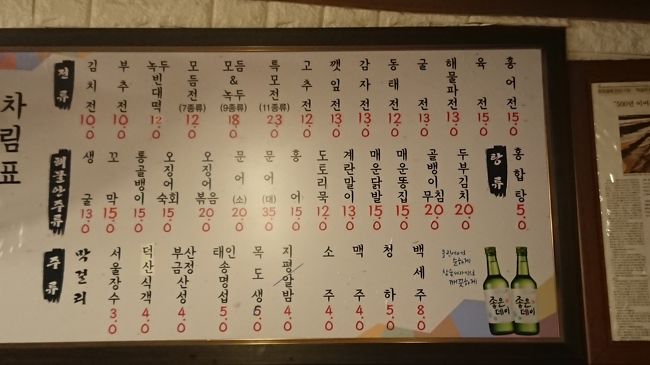 차림표
전류
김치전 10.0
부추전 10.0
녹두빈대떡 12.0
모듬전 (7종류) 12.0
모듬&녹두 (9종류) 18.0
특모전 (11종류) 23.0
고추전 12.0
깻잎전 12.0
감자전 12.0
동태전 12.0
굴전 13.0
해물파전 13.0
육전 15.0
홍어전 15.0
해물안주류
생굴 13.0
꼬막 15.0
통골뱅이 15.0
오징어숙회 15.0
오징어볶음 20.0
문어(소) 20.0
문어(대) 35.0
홍어 15.0
도토리묵 12.0
계란말이 13.0
매운닭발 15.0
매운똥집 15.0
골뱅이무침 20.0
두부김치 20.0
탕류
홍합탕 5.0
주류
막걸리
서울장수 3.0
덕산식객 4.0
부산금정산성 4.0
태인송명섭 5.0
목도생 5.0
지평알밤 4.0
소주 4.0
맥주 4.0
청하 5.0
백세주 8.0
좋은데이
좋은데이
"500년 이어